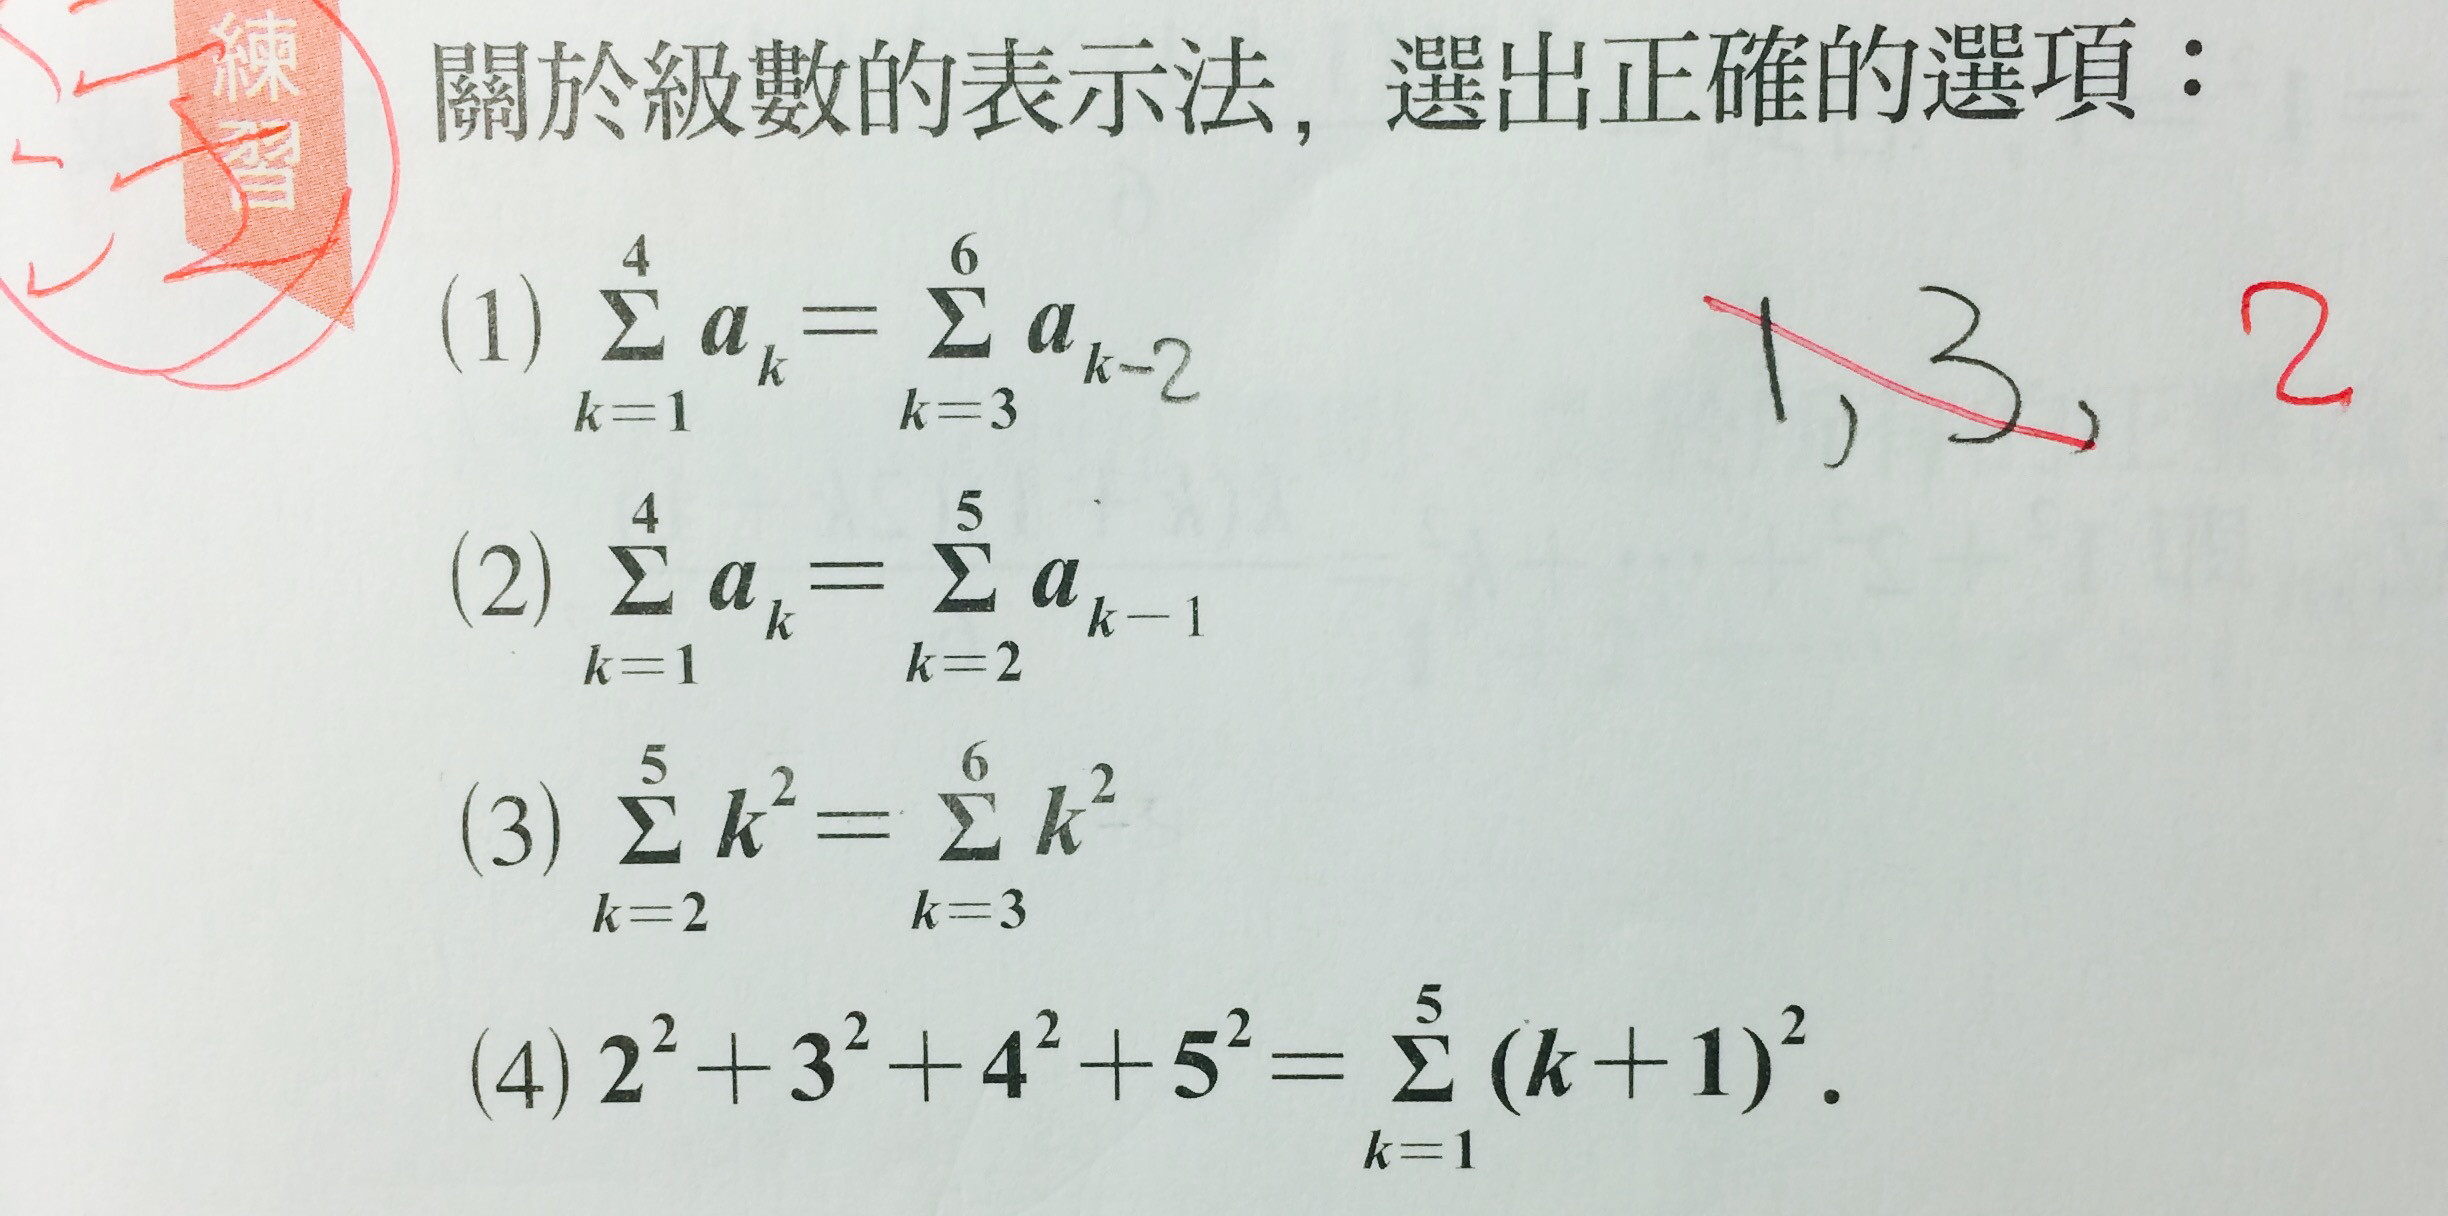 練習
關於級數的表示法，選出正確的選項：
(1) $\sum_{k=1}^{4} a_k = \sum_{k=3}^{6} a_{k-2}$
1, 3, 2
(2) $\sum_{k=1}^{4} a_k = \sum_{k=2}^{5} a_{k-1}$
(3) $\sum_{k=2}^{5} k^2 = \sum_{k=3}^{6} k^2$
(4) $2^2+3^2+4^2+5^2 = \sum_{k=1}^{5} (k+1)^2.$